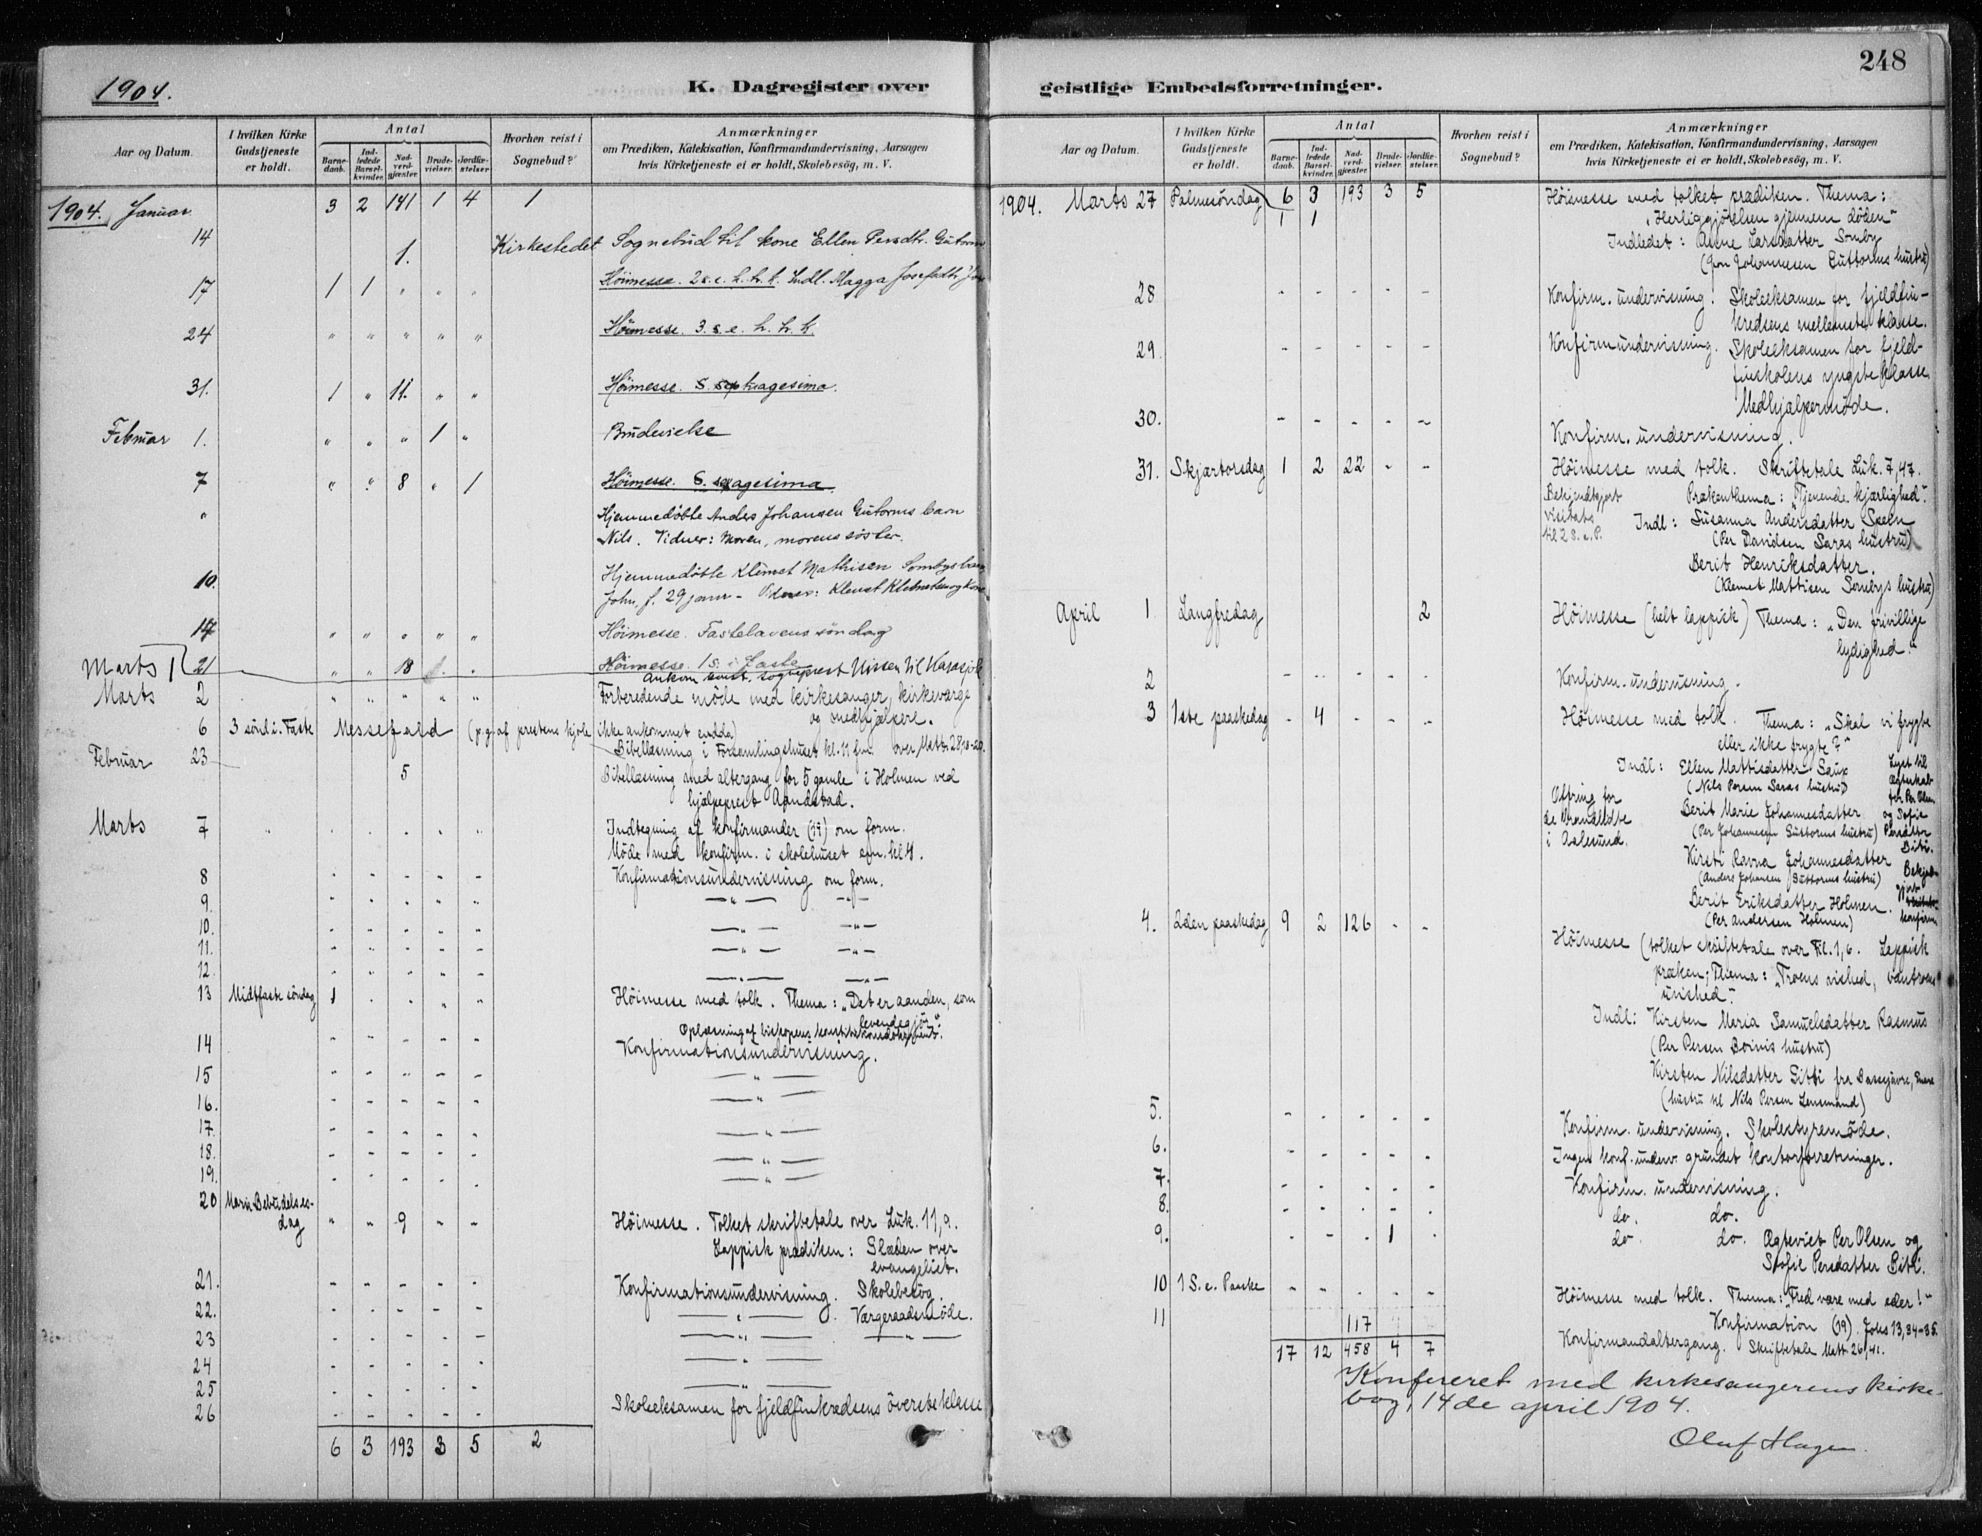 1904.
K. Dagregister over geistlige Embedsforretninger.
248
Aar og Datum.
I hvilken Kirke Gudstjeneste er holdt.
Antal
Barnedaab.
Indledede Barselkvinder.
Nadverdgjæster.
Brudevielser.
Jordfæstelser.
Hvorhen reist i Sognebud?
Anmærkninger
om Prædiken, Katekisation, Konfirmandundervisning, Aarsagen
hvis Kirketjeneste ei er holdt, Skolebesøg, m. V.
1904. Januar 3 2 141 1 4 1
14 1. Kirkestedet Sognebud til kone Ellen Persdtr.
17 1 1 " " " Höimesse. 2 s. e. h. t. k. Indl. Magga Josefsdtr
24 " " " " " Höimesse. 3. s. e. h. t. k.
31. 1 " 11. " " Höimesse. S. septuagesima.
Februar 1. " " " 1 " Brudevielse
7 " " 8 " 1 Höimesse. S. sexagesima.
" Hjemmedöbte Anders Johansen Guttorms barn
Nils. Vidner: Moren, morens söster.
10. Hjemmedöbte Klemet Mathisen Sombys barn
John, f. 29 januar - Vidner: Klemet Klemetsen og kone
14 " " " " " Höimesse. Fastelavens söndag
Marts 1 21 " " 18 1. " Höimesse. 1 S. i Faste
Ankom const. sogneprest Nissen til Karasjok
Marts 2 " " " " " Forberedende möde med kirkesanger, kirkeværge
og medhjælpere.
6 3 sönd. i. Faste Messefald (p. g. af prestens kjole ikke ankommet endda)
Bibellæsning i Forsamlingshuset kl. 11 fm. over Matt. 28, 18-20.
Februar 23 5 Bibellæsning med altergang for 5 gamle i Holmen ved
hjælpeprest Aandstad.
Marts 7 " . . . " " Indtegning af konfirmander (19) om form.
Möde med konfirm. i skolehuset em. kl. 4.
8 - - - - - Konfirmationsundervisning om form.
9. - - - - - —"— —"—
10. - - - - - —"— —"—
11. - - - - - —"— —"—
12. - - - - - —"— —"—
13 Midtfaste söndag 1 . . " " Höimesse med tolk. Thema: "Det er aanden, som
levendegjör".
Oplæsning af biskopens
14 - - - - - Konfirmationsundervisning.
15 - - - - - —"—
16. - - - - - —"—
17. - - - - - —"—
18. - - - - - —"—
19. - - - - - —"—
20 Mariæ Bebudelsesdag " " 9 " " Höimesse. Tolket skriftetale over Luk. 11, 9.
Lappisk prædiken: Glæden over
evangeliet.
21. - - - - - Konfirmationsundervisning. Skolebesög.
22. - - - - - —"— . Værgeraadsmöde.
23 - - - - - —"— —"—
24 - - - - - —"—
25 - - - - - —"—
26 - - - - - Skoleeksamen for fjeldfinkredsens överste klasse
6 3 193 3 5 2
Aar og Datum.
I hvilken Kirke Gudstjeneste er holdt.
Antal
Barnedaab.
Indledede Barselkvinder.
Nadverdgjæster.
Brudevielser.
Jordfæstelser.
Hvorhen reist i Sognebud?
Anmærkninger
om Prædiken, Katekisation, Konfirmandundervisning, Aarsagen
hvis Kirketjeneste ei er holdt, Skolebesøg, m. V.
1904. Marts 27 Palmesöndag 6 3 193 3 5 Höimesse med tolket prædiken. Thema:
1 1 "Herliggjörelsen gjennem döden"
Indledet: Anne Larsdatter Somby
(Jon Johannesen Guttorms hustru)
28 - - - - - Konfirm. undervisning. Skoleeksamen for fjeldfin-
kredsens mellemste klasse.
29. - - - - - Konfirmundervisning. Skoleeksamen for fjeld-
finskolens yngste klasse.
Medhjælpermöde.
30. - - - - - Konfirm. undervisning.
31. Skjærtorsdag 1 2 22 - - Höimesse med tolk. Skriftetale Luk. 7, 47.
Bekjendtgjort visitats til 2 S. e. P.
Prækenthema: "Tjenende kjærlighed".
Indl: Susanna Andersdatter Spein
(Per Davidsen Saras hustru)
Berit Henriksdatter.
(Klemet Mattisen Sombys hustru)
April 1 Langfredag 2 Höimesse (helt lappisk) Thema: "Den frivillige
lydighed."
2 - - - - - Konfirm. undervisning.
3 1ste paaskedag - 4 - - - Höimesse med tolk. Thema: "Skal vi frygte
eller ikke frygte?"
Indl: Ellen Mattisdatter Saux
(Nils Persen Saras hustru)
Ofring for de brandlidte i Aalesund.
Berit Marie Johannesdatter
(Per Johannesen Guttorms hustru)
Kirsti Ravna Johannesdatter
(Anders Johansen Guttorms hustru)
Berit Eriksdatter Holmen.
(Per Andersen Holmen)
Lyst til ægteskab for Per Olsen og Sofie Persdatter Biti.
4. 2den paaskedag 9 2 126 - - Höimesse (tolket skriftetale over Fil. 1, 6. Lappisk
præken; Thema: "Troens vished, vantroens
uvished".
Indl: Kirsten Maria Samuelsdatter Rasmus
(Per Persen Boinis hustru)
Kirsten Nilsdatter Eitti fra
(hustru til Nils Persen Lensmand)
5. - - - - - Konfirm. undervisning. Skolestyremöde.
6. - - - - - Ingen konf. underv. grundet kontorforretninger.
7. - - - - - Konfirm. undervisning.
8. - - - - - do. do.
9. - - - 1 . do. do. Ægteviet Per Olsen og
Sofie Persdatter Biti.
10 1 S. e. Paaske - - . . . Höimesse med tolk. Thema: "Fred være med eder!"
11 117 Konfirmation (19). Johs 13, 34-35.
Konfirmandaltergang. Skriftetale Matt. 26, 41.
17 12 458 4 7
Konfereret med kirkesangerens kirke-
bog, 14de april 1904.
Oluf Hagen